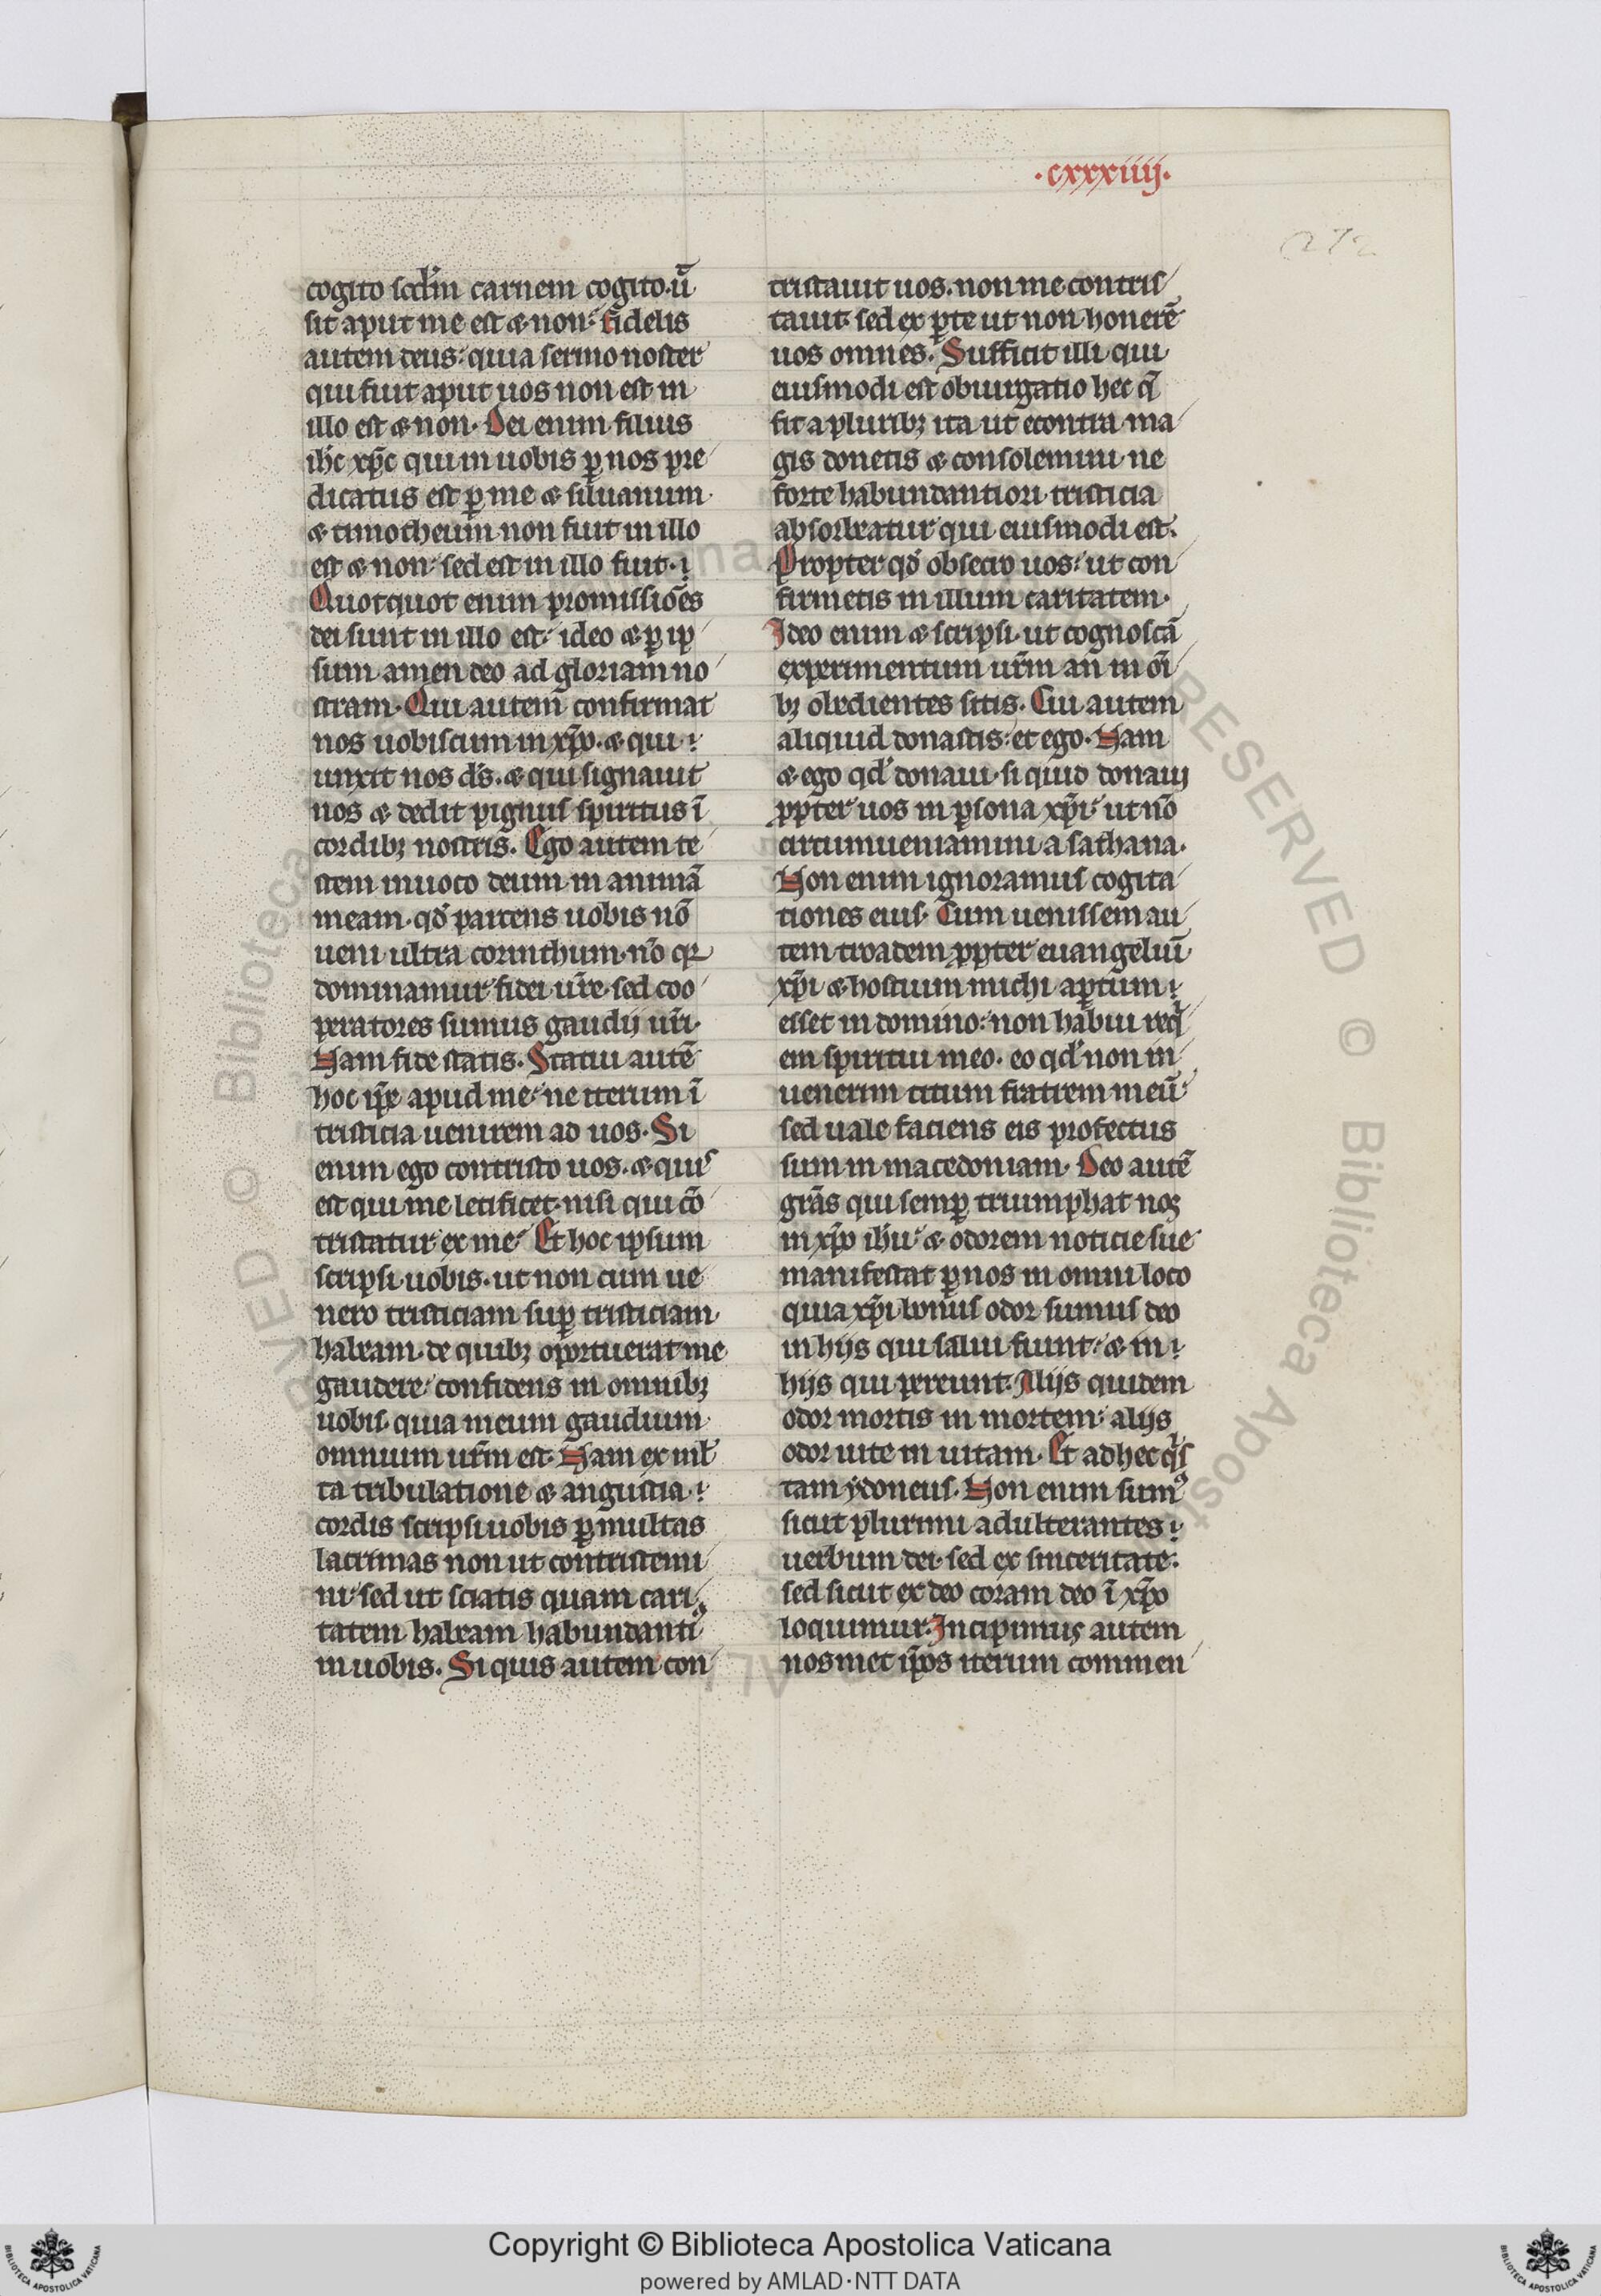 ·cxxxiiij·
272
cogito scd'm carnem cogito. ū
sit aput me est & non. fidelis
autem deus: quia sermo noster
qui fuit aput uos non est in
illo est & non. Dei enim filius
ih̄c xp̄c qui in uobis ꝑ nos pre
dicatus est ꝑ me & siluanum
& timotheum non fuit in illo
est & non. sed est in illo fuit.
Quotquot enim promissiōes
dei sunt in illo est. ideo & ꝑ ip
sum amen deo ad gloriam no
stram. Qui autem confirmat
nos uobiscum in xp̄o. & qui
unxit nos d's. & qui signauit
nos & dedit pignus spiritus ī
cordibꝫ nostris. Ego autem te
stem inuoco deum in animā
meam. qđ parcens uobis nō
ueni ultra corinthum. nō qꝛ
dominamur fidei ur̄e. sed coo
peratores sumus gaudij ur̄i.
Nam fide statis. Statui autē
hoc ip̄e apud me. ne iterum ī
tristicia uenirem ad uos. Si
enim ego contristo uos. & quis
est qui me letificet. nisi qui cō
tristatur ex me. Et hoc ipsum
scripsi uobis. ut non cum ue
nero tristiciam suꝑ tristiciam
habeam. de quibꝫ oportuerat me
gaudere. confidens in omnibꝫ
uobis. quia meum gaudium
omnium ur̄m est. Nam ex ml'
ta tribulatione & angustia.
cordis scripsi uobis ꝑ multas
lacrimas non ut contristemi
ni. sed ut sciatis quam cari
tatem habeam habundantiꝰ
in uobis. Si quis autem con
tristauit uos. non me contris
tauit. sed ex ꝑte ut non honerē
uos omnes. Sufficit illi qui
eiusmodi est obiurgatio hec q̄
fit a pluribꝫ ita ut econtra ma
gis donetis & consolemini ne
forte habundantiori tristicia
absorbeatur qui eiusmodi est.
Propter qđ obsecro uos. ut con
firmetis in illum caritatem.
Ideo enim & scripsi. ut cognoscā
experimentum ur̄m an in oī
bꝫ obedientes sitis. Cui autem
aliquid donastis: et ego. Nam
& ego qd' donaui. si quid donaui
ꝓpter uos in ꝑsona xp̄i. ut nō
circumueniamini a sathana.
Non enim ignoramus cogita
tiones eius. Cum uenissem au
tem troadem ꝓpter euangeliū
xp̄i & hostium michi aptum
esset in domino. non habui req
em spiritui meo. eo qd' non in
uenerim titum fratrem meū.
sed uale faciens eis profectus
sum in macedoniam. Deo autē
grās qui semꝑ triumphat nos
in xp̄o ih̄u. & odorem noticie sue
manifestat ꝑ nos in omni loco
quia xp̄i bonus odor sumus deo
in hijs qui salui fiunt. & in
hijs qui pereunt. Alijs quidem
odor mortis in mortem. alijs
odor uite in uitam. Et ad hec qis
tam ydoneus. Non enim sumꝰ
sicut plurimi adulterantes
uerbum dei. sed ex sinceritate.
sed sicut ex deo coram deo ī xp̄o
loquimur. Incipimus autem
nosmet ip̄os iterum commen
Copyright © Biblioteca Apostolica Vaticana
powered by AMLAD·NTT DATA